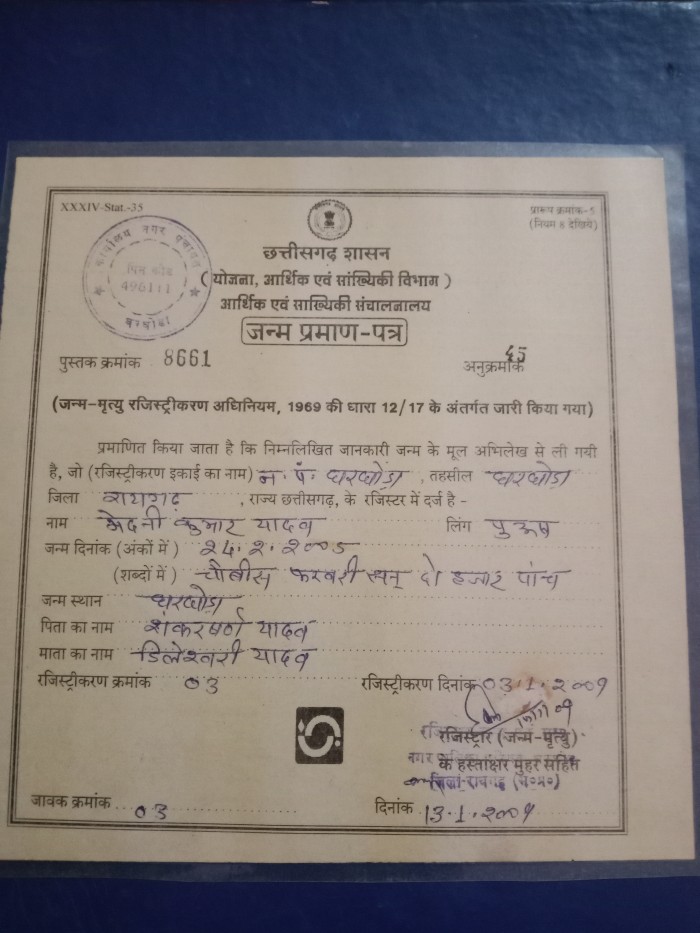 XXXIV-Stat.-35
प्रारूप क्रमांक-5
(नियम 8 देखिये)
कार्यालय नगर पंचायत
पिन कोड
496111
घरघोड़ा
छत्तीसगढ़ शासन
(योजना, आर्थिक एवं सांख्यिकी विभाग)
आर्थिक एवं साख्यिकी संचालनालय
जन्म प्रमाण-पत्र
पुस्तक क्रमांक 8661
अनुक्रमांक 45
(जन्म-मृत्यु रजिस्ट्रीकरण अधिनियम, 1969 की धारा 12/17 के अंतर्गत जारी किया गया)
प्रमाणित किया जाता है कि निम्नलिखित जानकारी जन्म के मूल अभिलेख से ली गयी
है, जो (रजिस्ट्रीकरण इकाई का नाम) न. पं. घरघोड़ा, तहसील घरघोड़ा
जिला रायगढ़, राज्य छत्तीसगढ़, के रजिस्टर में दर्ज है -
नाम मेदनी कुमार यादव लिंग पुरुष
जन्म दिनांक (अंकों में) 24.2.2005
(शब्दों में) चौबीस फरवरी सन् दो हजार पांच
जन्म स्थान घरघोड़ा
पिता का नाम शंकरषर्ण यादव
माता का नाम डिलेश्वरी यादव
रजिस्ट्रीकरण क्रमांक 03 रजिस्ट्रीकरण दिनांक 03.1.2009
रजिस्ट्रार (जन्म-मृत्यु)
के हस्ताक्षर मुहर सहित
जिला-रायगढ़
जावक क्रमांक 03 दिनांक 13.1.2009